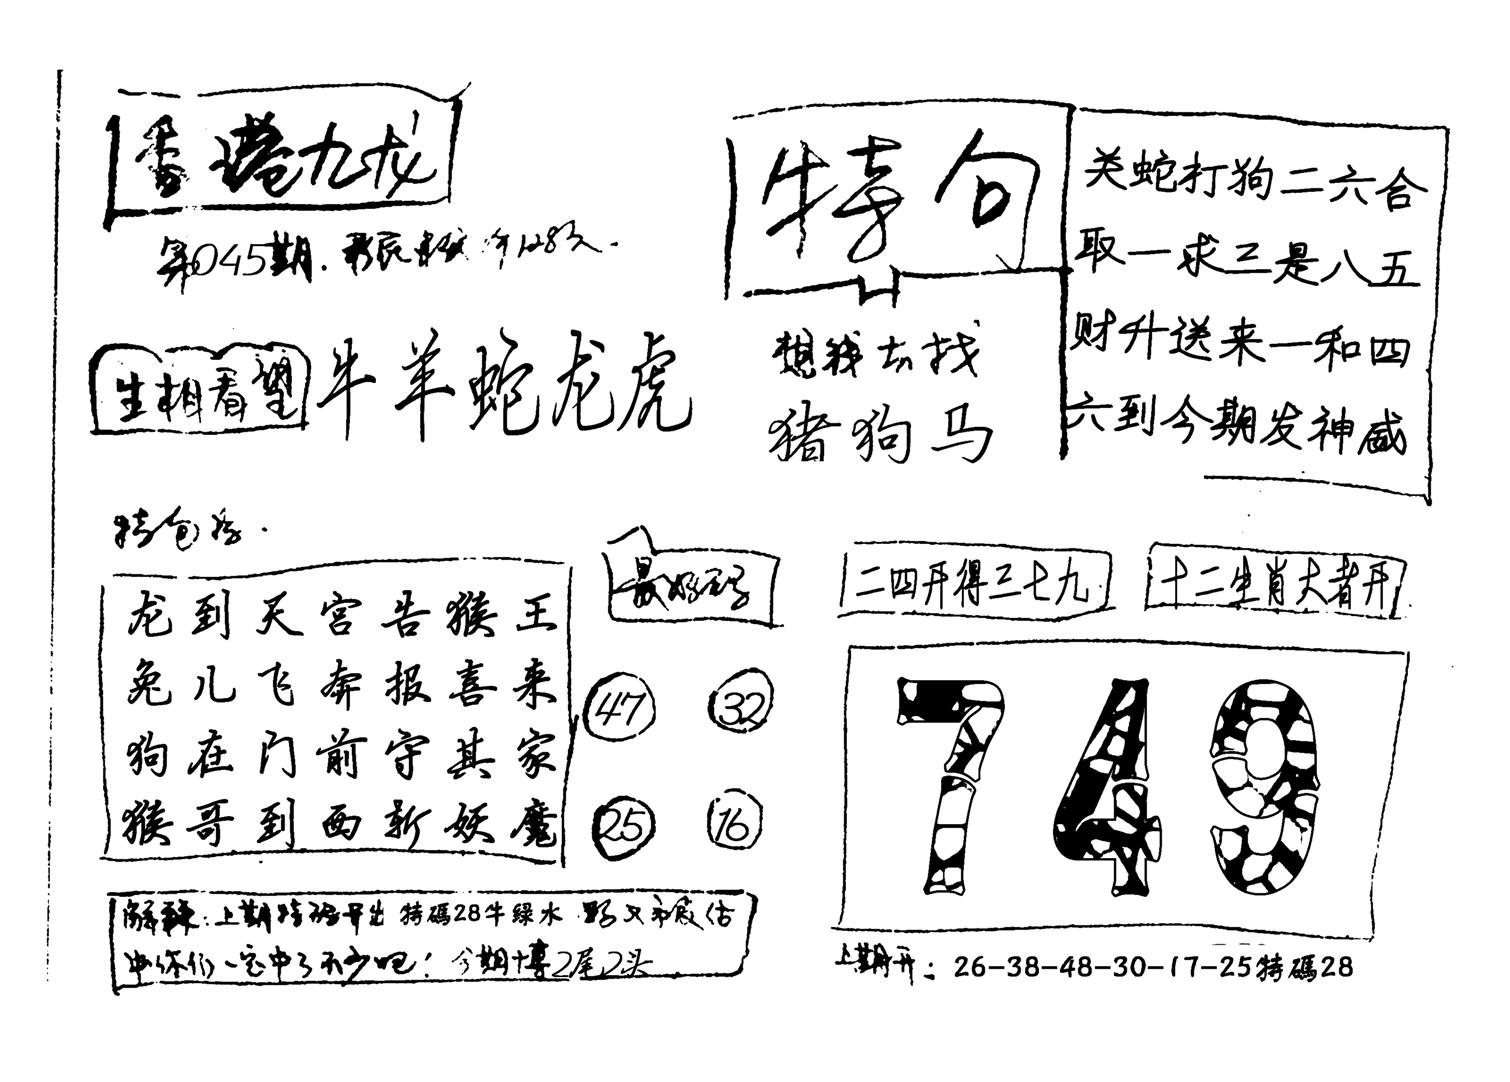 香港九龙
第045期.
生相看望
牛羊蛇龙虎
特句
想钱去找
猪狗马
关蛇打狗二六合
取一求三是八五
财升送来一和四
六到今期发神威
龙到天宫告猴王
兔儿飞奔报喜来
狗在门前守其家
猴哥到西斩妖魔
最好码
47 32
25 16
二四开得三七九
十二生肖大者开
749
解释:上期特码开出 特碼28牛绿水
你们一定中了不少吧! 今期博2尾2头
上期开: 26-38-48-30-17-25特碼28